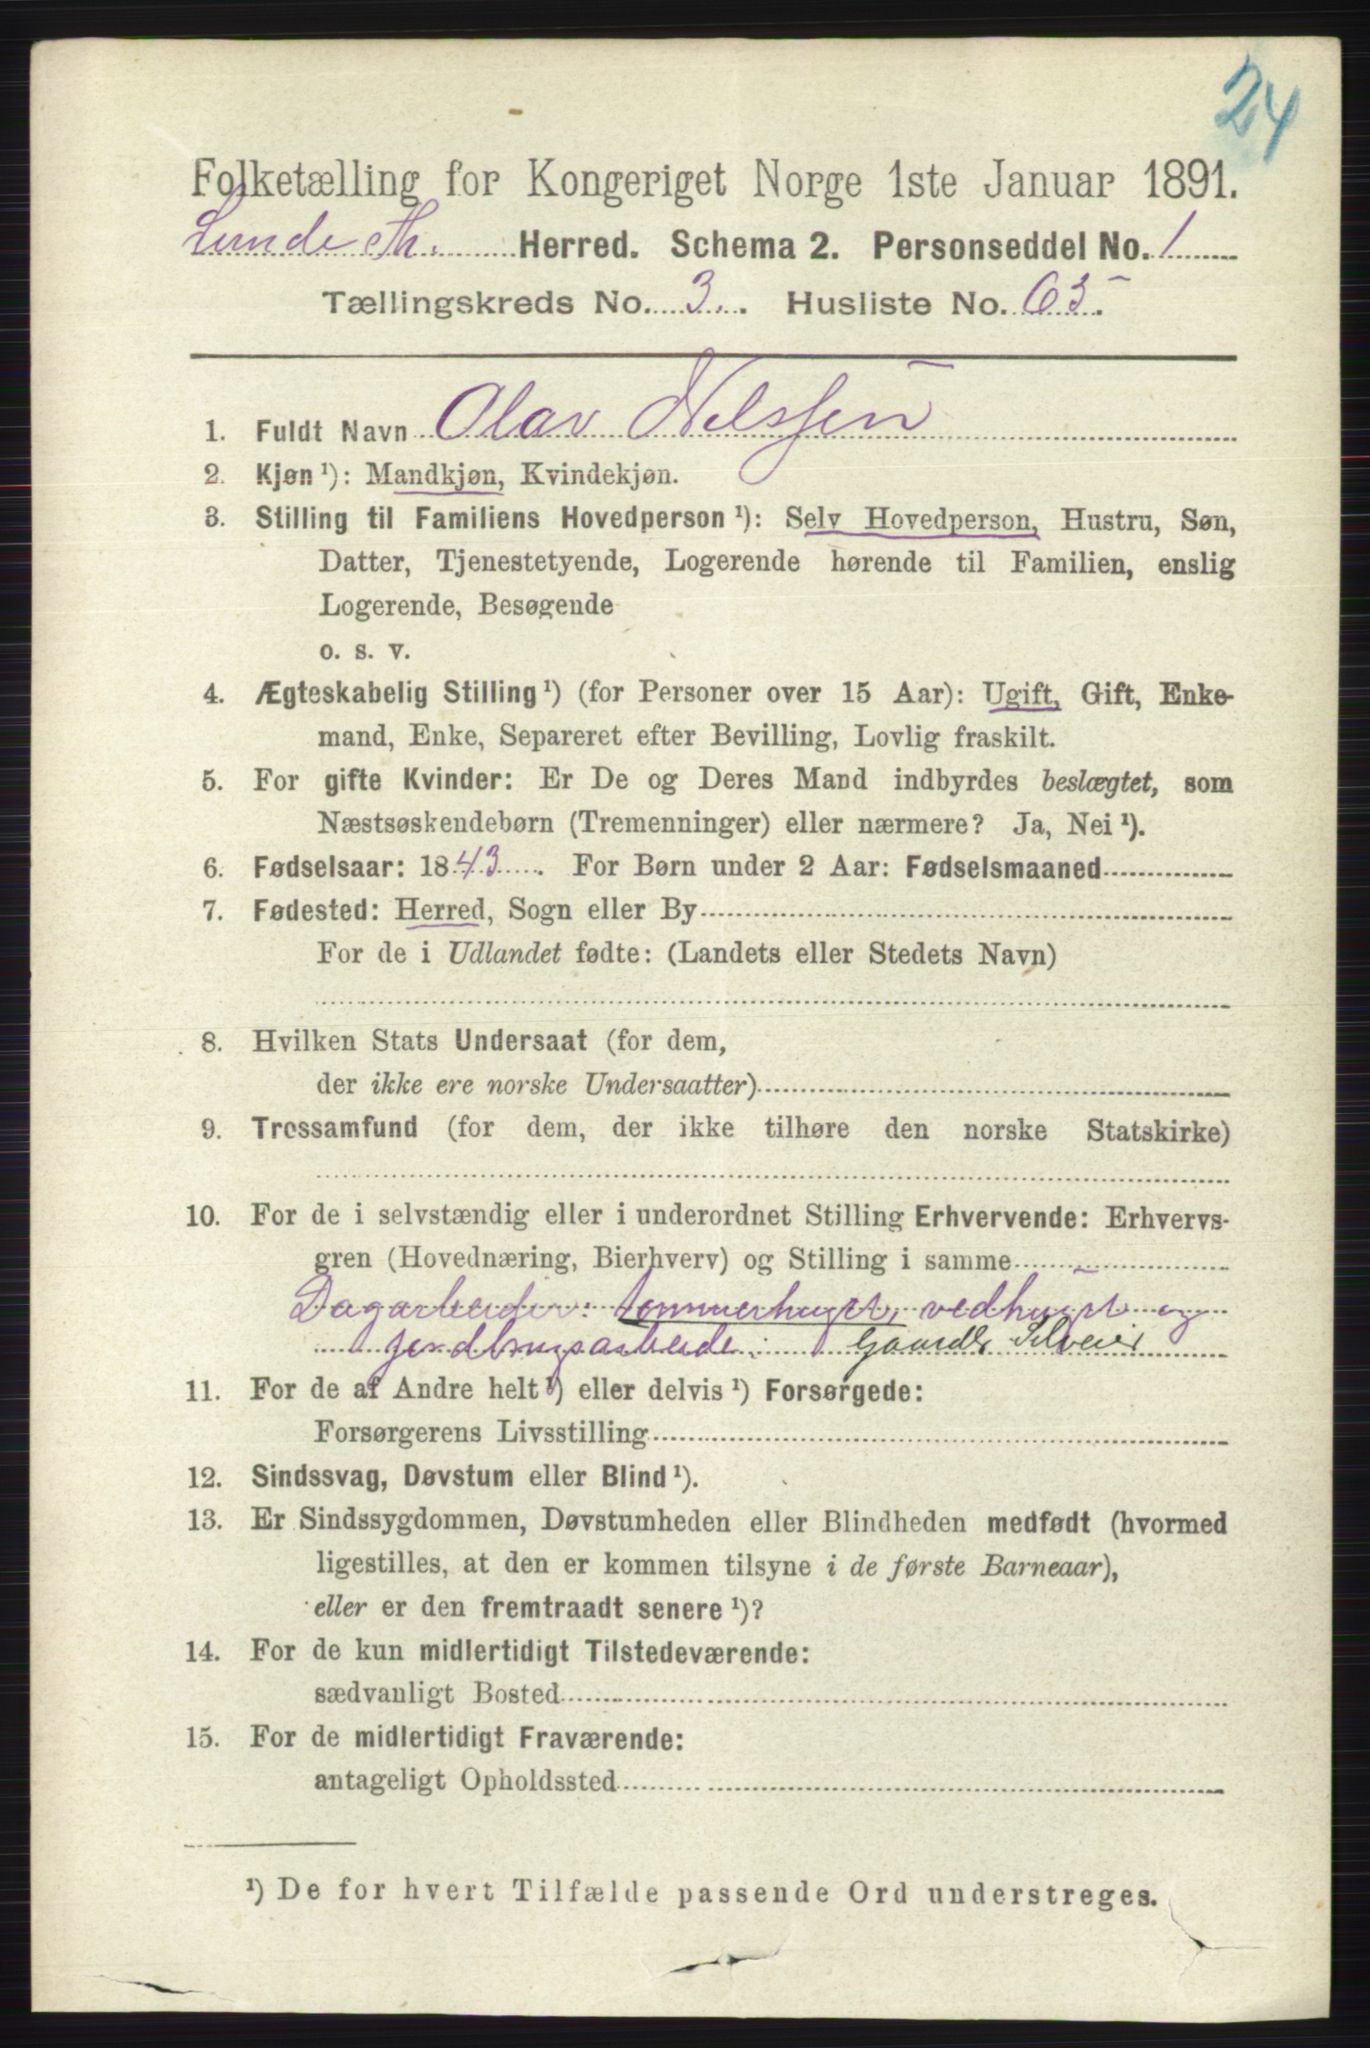 24
Folketælling for Kongeriget Norge 1ste Januar 1891.
Lunde Th. Herred. Schema 2. Personseddel No. 1
Tællingskreds No. 3. Husliste No. 63.
1. Fuldt Navn Olav Nelssen
2. Kjøn ¹): Mandkjøn, Kvindekjøn.
3. Stilling til Familiens Hovedperson ¹): Selv Hovedperson, Hustru, Søn,
Datter, Tjenestetyende, Logerende hørende til Familien, enslig
Logerende, Besøgende
o. s. v.
4. Ægteskabelig Stilling ¹) (for Personer over 15 Aar): Ugift, Gift, Enke-
mand, Enke, Separeret efter Bevilling, Lovlig fraskilt.
5. For gifte Kvinder: Er De og Deres Mand indbyrdes beslægtet, som
Næstsøskendebørn (Tremenninger) eller nærmere? Ja, Nei ¹).
6. Fødselsaar: 1843. For Børn under 2 Aar: Fødselsmaaned
7. Fødested: Herred, Sogn eller By
For de i Udlandet fødte: (Landets eller Stedets Navn)
8. Hvilken Stats Undersaat (for dem,
der ikke ere norske Undersaatter)
9. Trossamfund (for dem, der ikke tilhøre den norske Statskirke)
10. For de i selvstændig eller i underordnet Stilling Erhvervende: Erhvervs-
gren (Hovednæring, Bierhverv) og Stilling i samme
Dagarbeider: tømmerhugst, vedhugst og
jordbrugsarbeide. Gaards
11. For de af Andre helt ¹) eller delvis ¹) Forsørgede:
Forsørgerens Livsstilling
12. Sindssvag, Døvstum eller Blind ¹).
13. Er Sindssygdommen, Døvstumheden eller Blindheden medfødt (hvormed
ligestilles, at den er kommen tilsyne i de første Barneaar),
eller er den fremtraadt senere ¹)?
14. For de kun midlertidigt Tilstedeværende:
sædvanligt Bosted
15. For de midlertidigt Fraværende:
antageligt Opholdssted
¹) De for hvert Tilfælde passende Ord understreges.